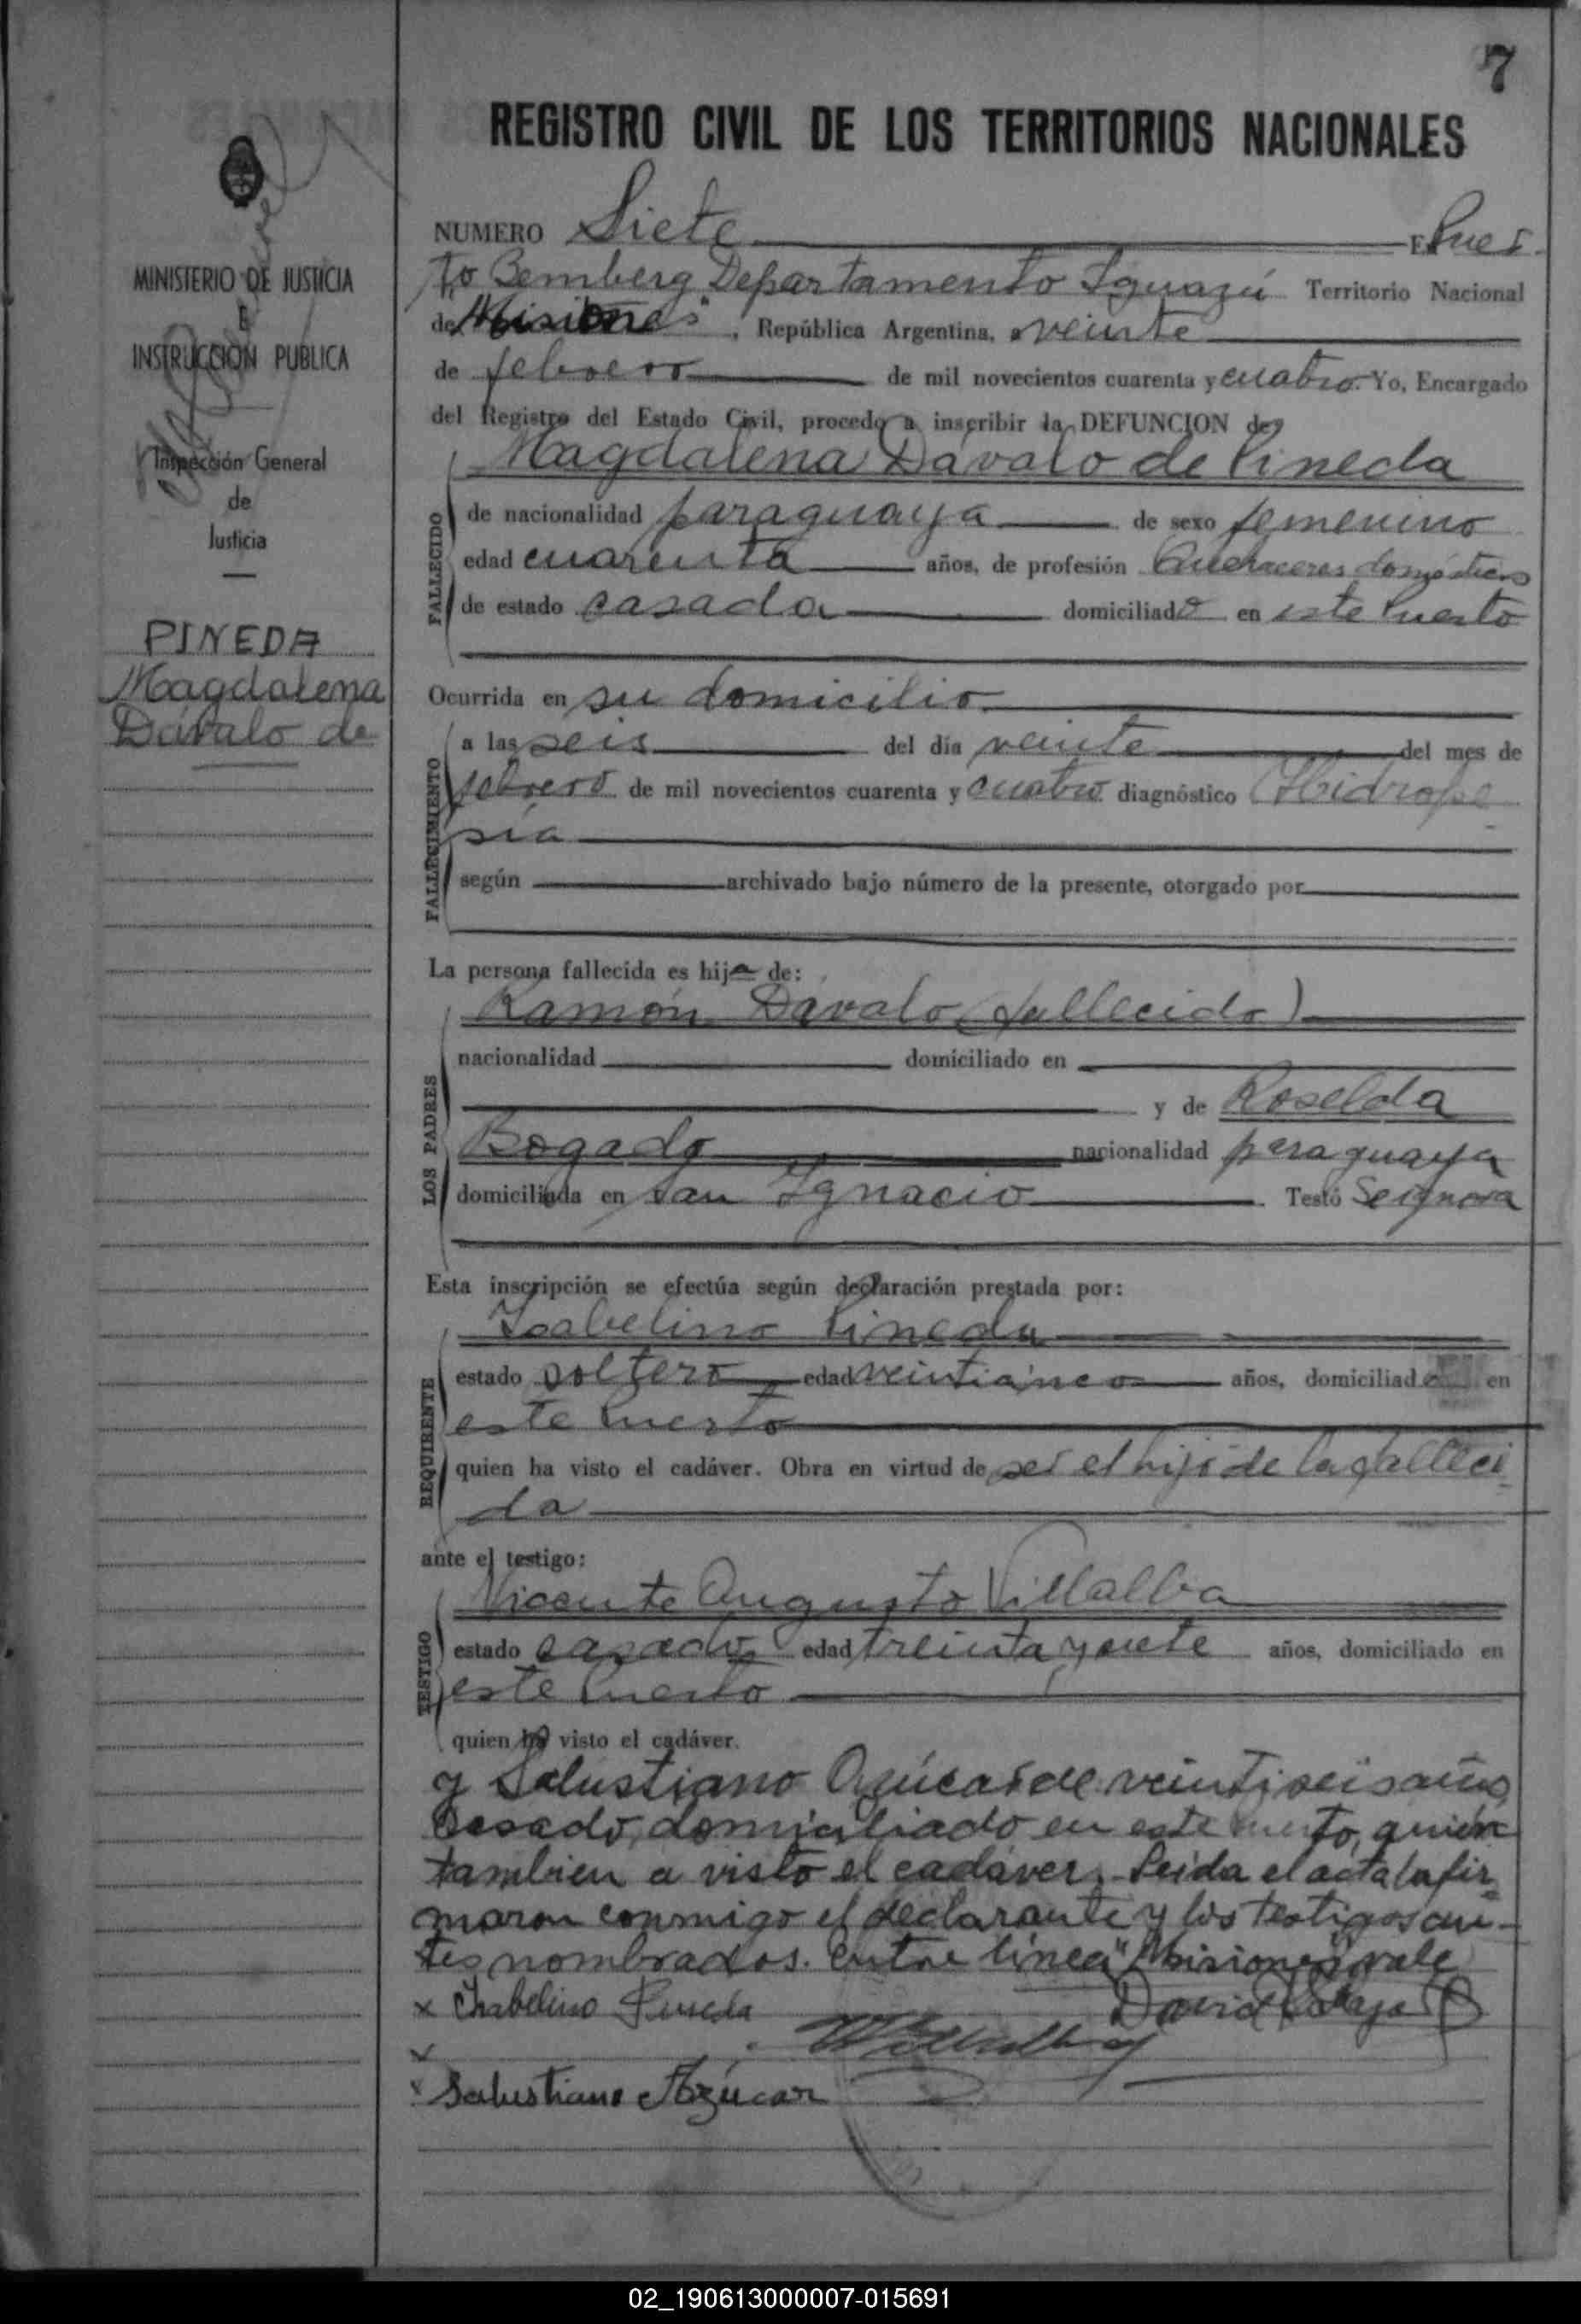 7
REGISTRO CIVIL DE LOS TERRITORIOS NACIONALES
MINISTERIO DE JUSTICIA
E
INSTRUCCION PUBLICA
Inspección General
de
Justicia
PINEDA
Magdalena
Dávalo de
NUMERO Siete En Puer-
to Bemberg Departamento Iguazú Territorio Nacional
de "Misiones", República Argentina, a veinte
de febrero de mil novecientos cuarenta y cuatro. Yo, Encargado
del Registro del Estado Civil, procedo a inscribir la DEFUNCION de
Magdalena Dávalo de Pineda
FALLECIDO
de nacionalidad paraguaya de sexo femenino
edad cuarenta años, de profesión Quehaceres domésticos
de estado casada domiciliado en este Puerto
Ocurrida en su domicilio
FALLECIMIENTO
a las seis del día veinte del mes de
febrero de mil novecientos cuarenta y cuatro diagnóstico Hidrope
sía
según archivado bajo número de la presente, otorgado por
La persona fallecida es hija de:
LOS PADRES
Ramón Dávalo (fallecido)
nacionalidad domiciliado en
y de Roselda
Bogado nacionalidad paraguaya
domiciliada en San Ignacio Testó Se ignora
Esta inscripción se efectúa según declaración prestada por:
REQUIRENTE
Isabelino Pineda
estado soltero edad veinticinco años, domiciliado en
este Puerto
quien ha visto el cadáver. Obra en virtud de ser el hijo de la falleci
da
ante el testigo:
TESTIGO
Vicente Augusto Villalba
estado casado edad treinta y siete años, domiciliado en
este Puerto
quien ha visto el cadáver.
y Salustiano Azúcar de veintiseis años,
casado, domiciliado en este Puerto, quién
tambien a visto el cadáver. Leida el acta la fir-
maron conmigo el declarante y los testigos an-
tes nombrados. Entre línea "Misiones", vale
x Isabelino Pineda David
x
x Salustiano Azúcar
02_190613000007-015691